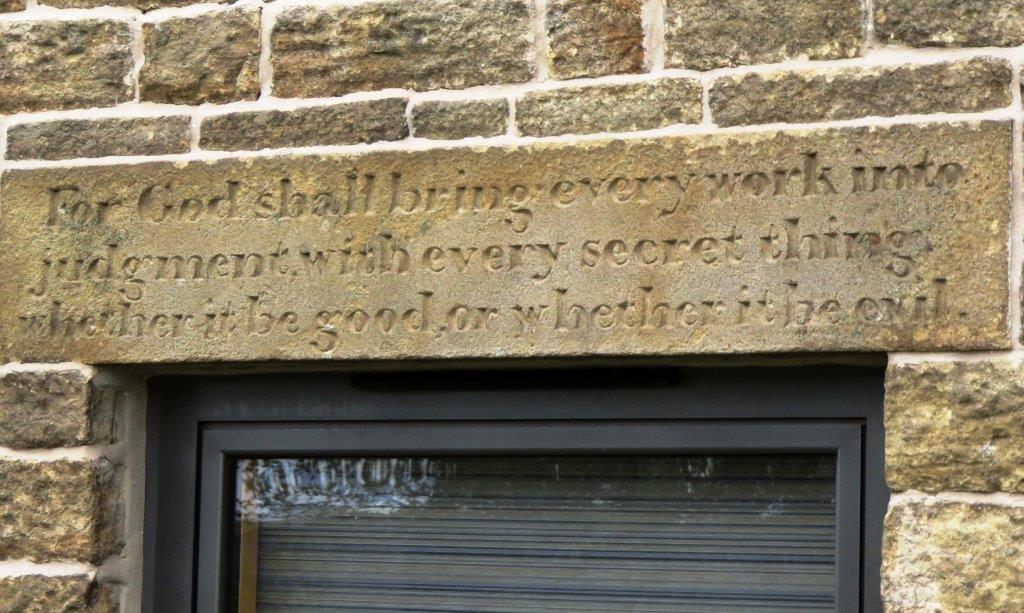 For God shall bring every work into
judgment, with every secret thing,
whether it be good, or whether it be evil.